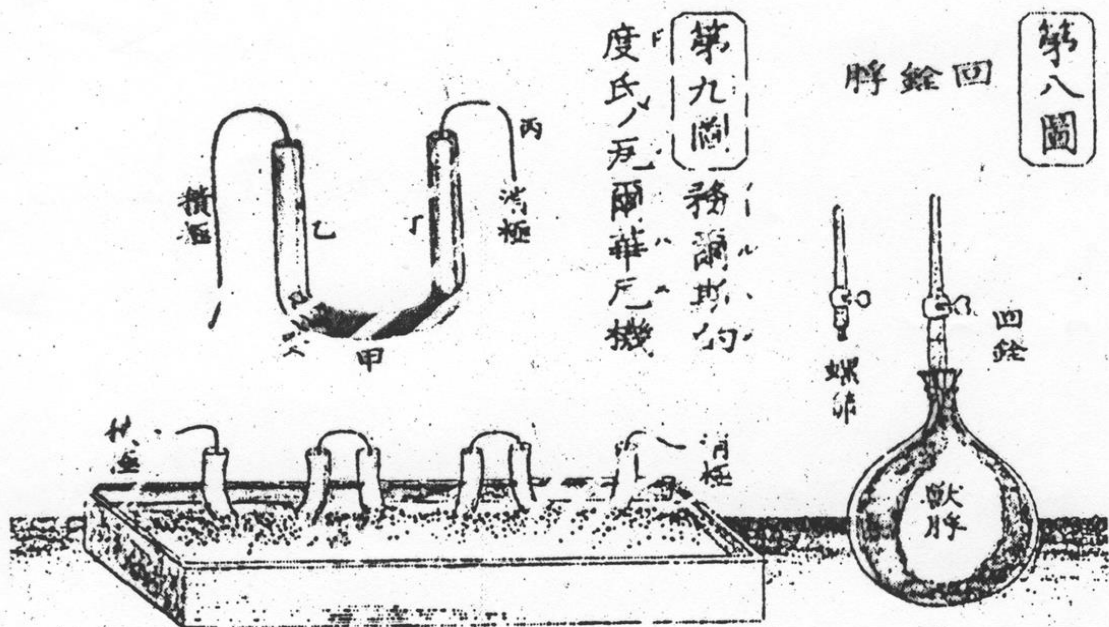 第八圖
回銓脬
回銓
螺旋
獸脬
第九圖 務爾斯的
度氏ノ瓦爾華尼機
丙
消極
積極
乙
丁
甲
消極